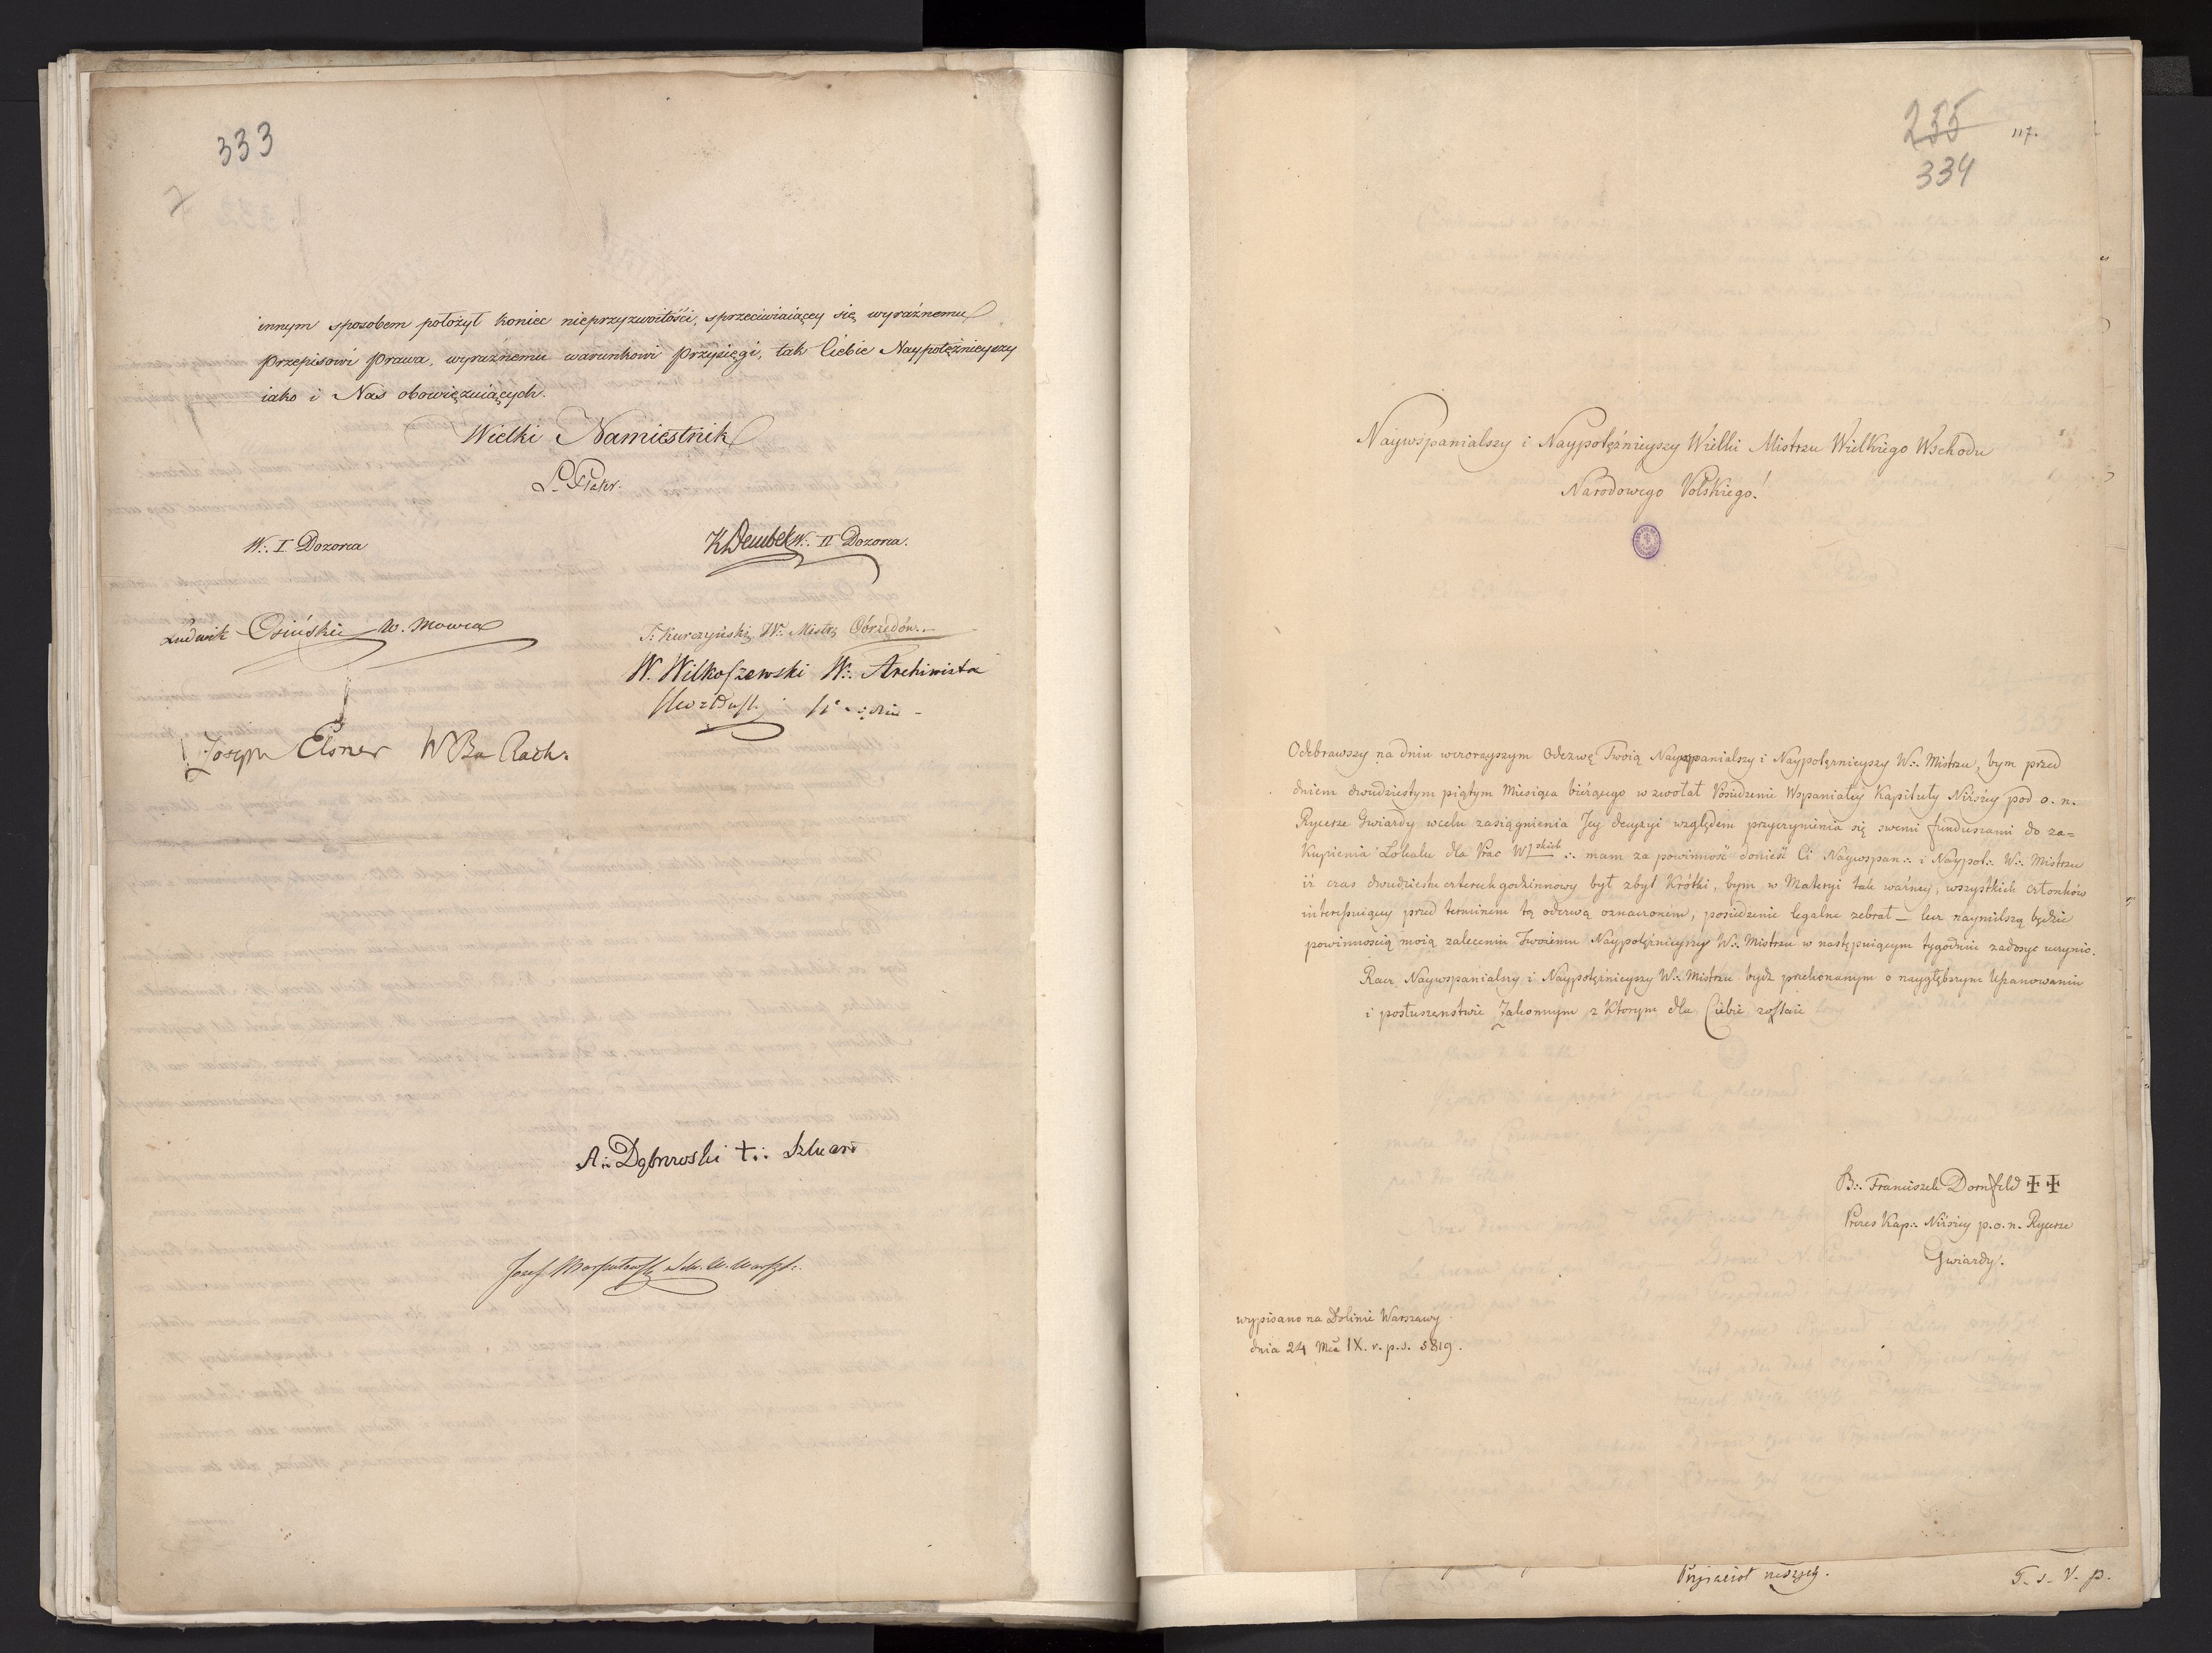 333
innym sposobem położył koniec nieprzyzwoitości, sprzeciwiaiącey się wyraźnemu
przepisowi prawa, wyraźnemu warunkowi przysięgi, tak Ciebie Naypotężnieyszy
iako i Nas obowięzuiących.
Wielki Namiestnik
L. Plater.
W∴ I Dozorca
K Dembek W∴ II Dozorca.
Ludwik Osiński W. Mowca
J: Kurczyński, W∴ Mistrz Obrzędów.
W. Wilkoszewski W∴ Archiwista
Joseph Elsner W Bu Rach.
A∴ Dąbrowski +∴ Sztuart
Josef
255 117.
334
Naywspanialszy i Naypotężnieyszy Wielki Mistrzu Wielkiego Wschodu
Narodowego Polskiego!
Odebrawszy na dniu wczorayszym Odezwę Twoią Naywspanialszy i Naypotężnieyszy W∴ Mistrzu, bym przed
dniem dwudziestym piątym Miesiąca bieżącego wzwołał Posiedzenie Wspaniałey Kapituły Niższey pod o. n.
Rycerze Gwiazdy wcelu zasiągnienia Jey decyzyi względem przyczynienia się swemi funduszami do za=
kupienia Lokalu dla Prac W∴ mam za powinność donieść Ci Naywspan∴ i Naypot∴ W∴ Mistrzu
iż czas dwudziestu czterech godzinnowy był zbyt krótki, bym w Materyi tak ważney, wszystkich członków
interessuiącey przed terminem tą odezwą oznaczonem, posiedzenie legalne zebrał — lecz naymilszą będzie
powinnością moią zaleceniu Twoiemu Naypotężnieyszy W∴ Mistrzu w następuiącym tygodniu zadosyc uczynic.
Racz Naywspanialszy i Naypotężnieyszy W∴ Mistrzu bydź przekonanym o naygłębszym Uszanowaniu
i posłuszeństwie Zakonnym z którym dla Ciebie zostaie
B∴ Franciszek Dornfeld ++
Prezes Kap∴ Niższey p. o. n. Rycerze
Gwiazdy.
wypisano na Dolinie Warszawy
dnia 24 Mca IX. r. p. s. 5819.
Przyiaciół naszych.
T. s. V. p.